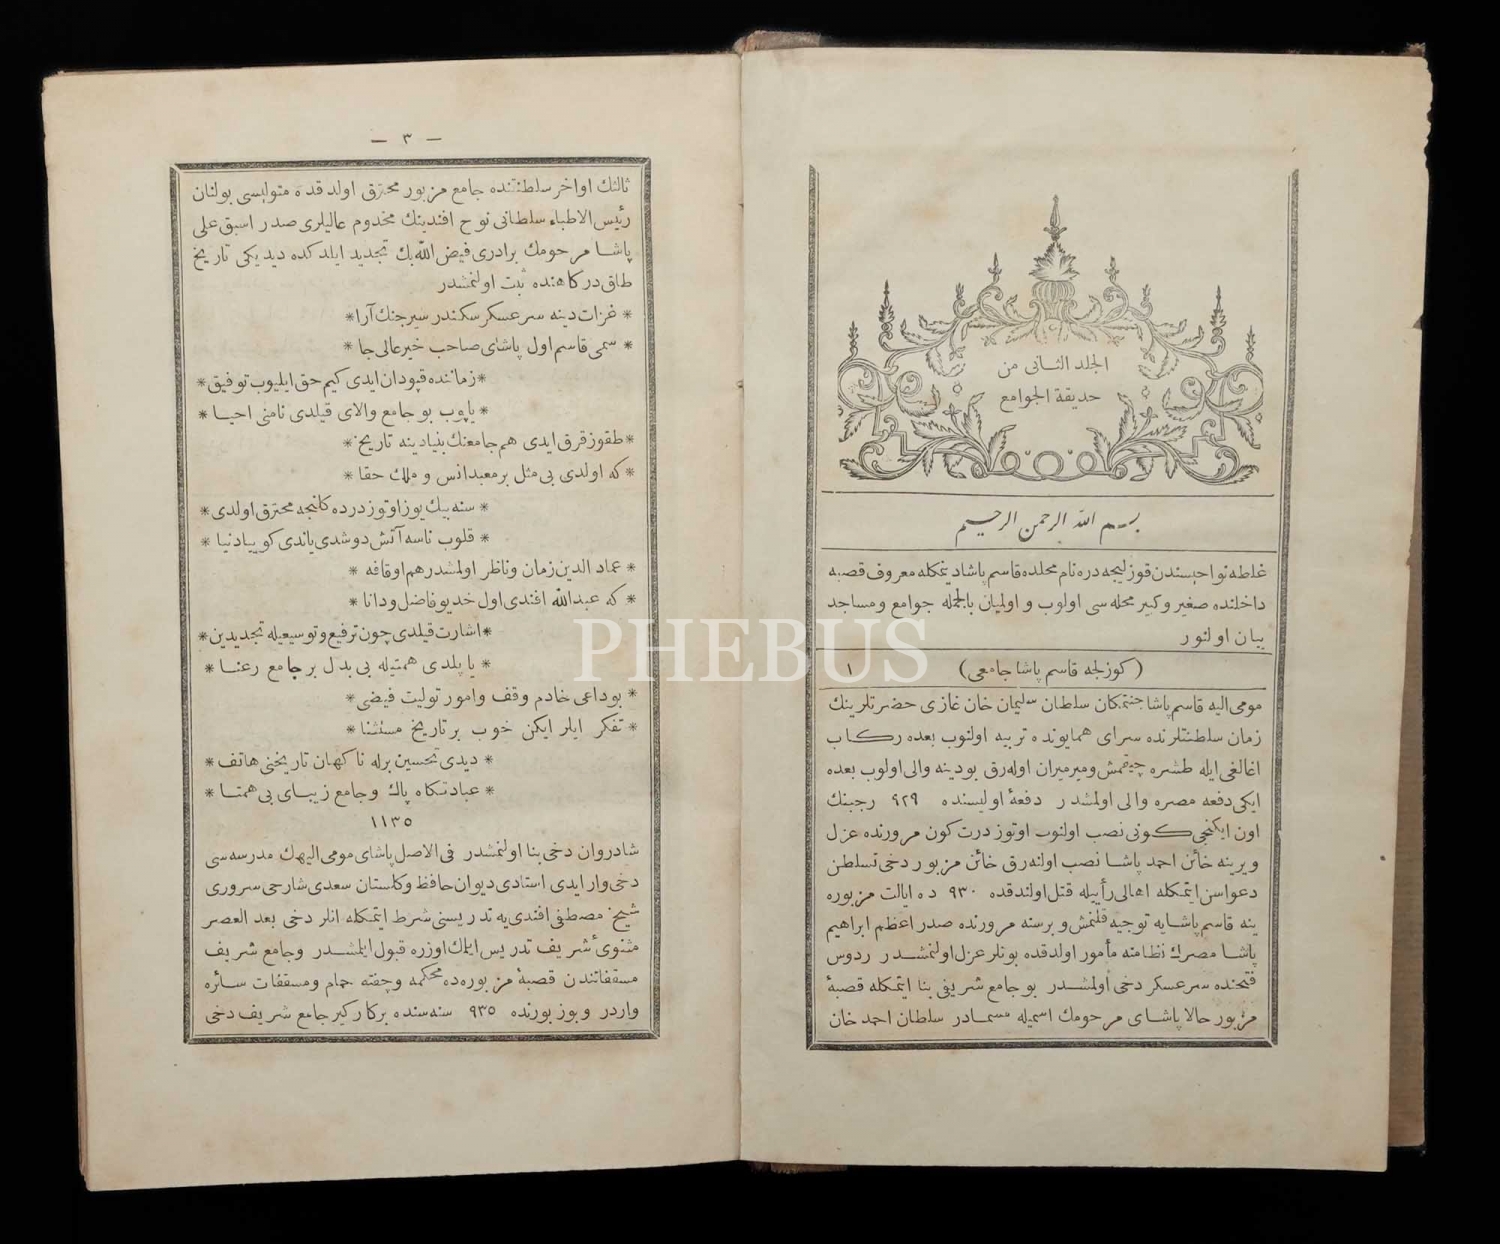 الجلد الثانی من
حدیقة الجوامع
بسم الله الرحمن الرحیم
غلطه نواحیسندن قوزلیجه دره نام محلده قاسم پاشا دیمکله معروف قصبه
داخلنده صغیر و کبیر محله سی اولوب و اولمیان بالجمله جوامع و مساجد
بیان اولنور
(کوزلجه قاسم پاشا جامعی) ١
مومی الیه قاسم پاشا جنتمکان سلطان سلیمان خان غازی حضرتلرینك
زمان سلطنتلرنده سرای همایونده تربیه اولنوب بعده رکاب
اغالغی ایله طشره چیقمش و میرمیران اوله رق بودینه والی اولوب بعده
ایکی دفعه مصره والی اولمشدر دفعهٔ اولیسنده ٩٢٩ رجبنك
اون ایکنجی کونی نصب اولنوب اوتوز درت کون مرورنده عزل
و یرینه خائن احمد پاشا نصب اولنه رق خائن مزبور دخی تسلطن
دعواسن ایتمکله اهالی رأییله قتل اولندقده ٩٣٠ ده ایالت مزبوره
ینه قاسم پاشایه توجیه قلنمش و برسنه مرورنده صدر اعظم ابراهیم
پاشا مصرك نظامنه مأمور اولدقده بونلر عزل اولنمشدر ردوس
فتحنده سرعسکر دخی اولمشدر بو جامع شریفی بنا ایتمکله قصبهٔ
مزبور حالا پاشای مرحومك اسمیله مسمادر سلطان احمد خان
— ٣ —
ثالثك اواخر سلطنتنده جامع مزبور محترق اولدقده متولیسی بولنان
رئیس الاطباء سلطانی نوح افندینك مخدوم عالیلری صدر اسبق علی
پاشا مرحومك برادری فیض الله بك تجدید ایلدکده دیدیکی تاریخ
طاق درکاهنده ثبت اولنمشدر
* غزات دینه سرعسکر سکندر سیر جنك آرا *
* سمی قاسم اول پاشای صاحب خیر عالی جا *
* زماننده قپودان ایدی کیم حق ایلیوب توفیق *
* یاپوب بو جامع والای قیلدی نامنی احیا *
* طقوز قرق ایدی هم جامعنك بنیادینه تاریخ *
* که اولدی بی مثل بر معبد انس و ملك حقا *
* سنه بیك یوز اوتوز درده کلنجه محترق اولدی *
* قلوب ناسه آتش دوشدی یاندی کوییا دنیا *
* عماد الدین زمان و ناظر اولمشدر هم اوقافه *
* که عبدالله افندی اول خدیو فاضل و دانا *
* اشارت قیلدی چون ترفیع و توسیعیله تجدیدین *
* یاپلدی همتیله بی بدل بر جامع رعنا *
* بوداعی خادم وقف و امور تولیت فیضی *
* تفکر ایلر ایکن خوب بر تاریخ مستثنا *
* دیدی تحسین برله ناکهان تاریخنی هاتف *
* عبادتکاه پاك و جامع زیبای بی همتا *
١١٣٥
شادروان دخی بنا اولنمشدر فی الاصل پاشای مومی الیهك مدرسه سی
دخی وار ایدی استادی دیوان حافظ و کلستان سعدی شارحی سروری
شیخ مصطفی افندی یه تدریسنی شرط ایتمکله انلر دخی بعد العصر
مثنویٔ شریف تدریس ایلمك اوزره قبول ایلمشدر و جامع شریف
مسقفاتندن قصبهٔ مزبوره ده محکمه و چفته حمام و مسقفات سائره
واردر و بوز بورنده ٩٣٥ سنه سنده برکارکیر جامع شریف دخی